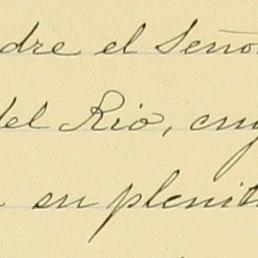 dre el Señor
del Rio, cuy
en plenit